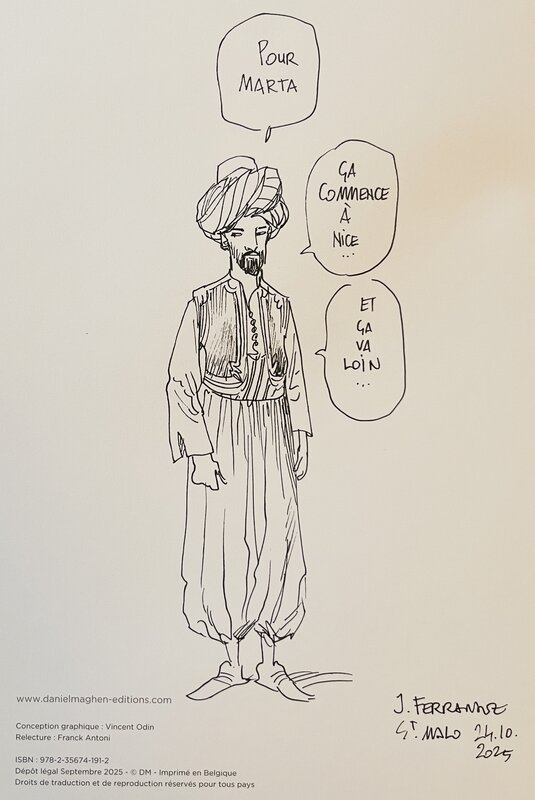 POUR
MARTA
ÇA
COMMENCE
À
NICE
...
ET
ÇA
VA
LOIN
...
www.danielmaghen-editions.com
Conception graphique : Vincent Odin
Relecture : Franck Antoni
ISBN : 978-2-35674-191-2
Dépôt légal Septembre 2025 - © DM - Imprimé en Belgique
Droits de traduction et de reproduction réservés pour tous pays
J. FERRANDEZ
ST MALO 24.10.
2025